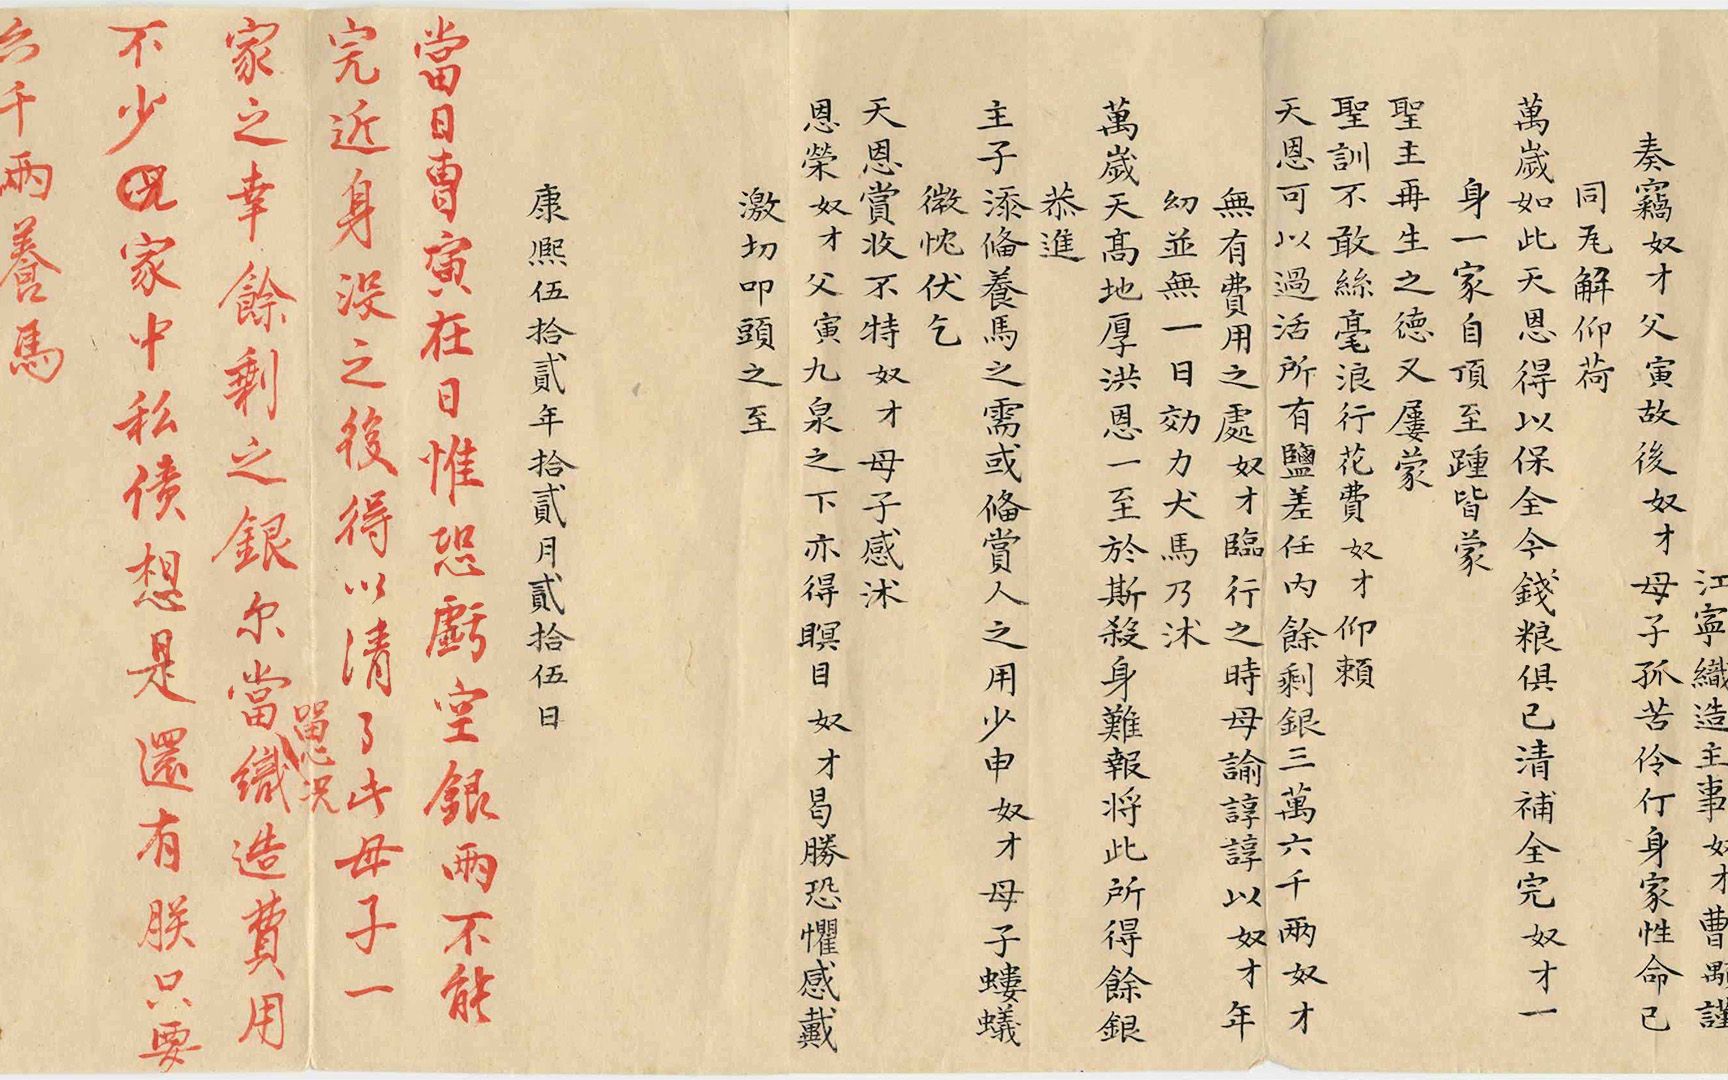 江寧織造主事奴才曹顒謹
奏竊奴才父寅故後奴才母子孤苦伶仃身家性命已
同瓦解仰荷
萬歲如此天恩得以保全今錢粮俱已清補全完奴才一
身一家自頂至踵皆蒙
聖主再生之德又屢蒙
聖訓不敢絲毫浪行花費奴才仰賴
天恩可以過活所有鹽差任內餘剩銀三萬六千兩奴才
無有費用之處奴才臨行之時母諭諄諄以奴才年
幼並無一日効力犬馬乃沐
萬歲天高地厚洪恩一至於斯殺身難報将此所得餘銀
恭進
主子添俻養馬之需或俻賞人之用少申奴才母子螻蟻
微忱伏乞
天恩賞收不特奴才母子感沐
恩榮奴才父寅九泉之下亦得瞑目奴才曷勝恐懼感戴
激切叩頭之至
康熙伍拾貳年拾貳月貳拾伍日
當日曹寅在日惟恐虧空銀兩不能
完近身没之後得以清了此母子一
家之幸餘剩之銀尔當織造費用
不少况家中私債想是還有朕只要
六千兩養馬